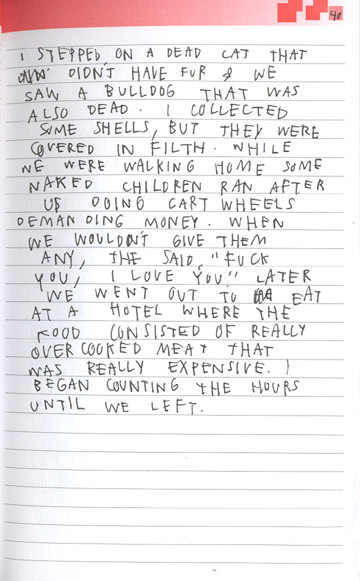 40
I STEPPED ON A DEAD CAT THAT
DIDN'T HAVE FUR & WE
SAW A BULLDOG THAT WAS
ALSO DEAD. I COLLECTED
SOME SHELLS, BUT THEY WERE
COVERED IN FILTH. WHILE
WE WERE WALKING HOME SOME
NAKED CHILDREN RAN AFTER
US DOING CART WHEELS
DEMANDING MONEY. WHEN
WE WOULDN'T GIVE THEM
ANY, THE SAID, "FUCK
YOU, I LOVE YOU" LATER
WE WENT OUT TO EAT
AT A HOTEL WHERE THE
FOOD CONSISTED OF REALLY
OVERCOOKED MEAT THAT
WAS REALLY EXPENSIVE. I
BEGAN COUNTING THE HOURS
UNTIL WE LEFT.